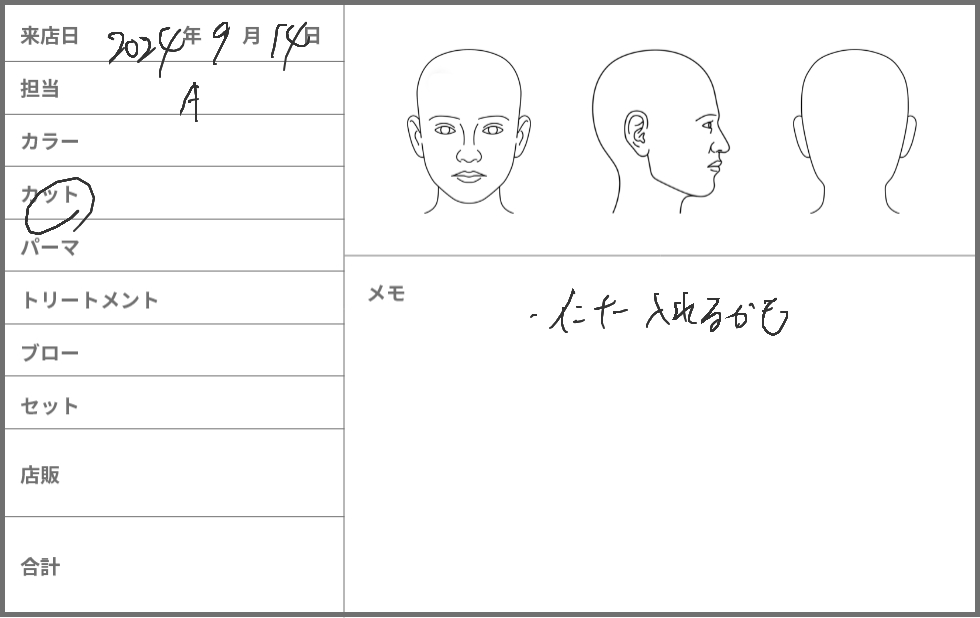 来店日 2024年 9月 14日
担当 A
カラー
カット
パーマ
トリートメント
ブロー
セット
店販
合計
メモ
・インナー 入れるかも